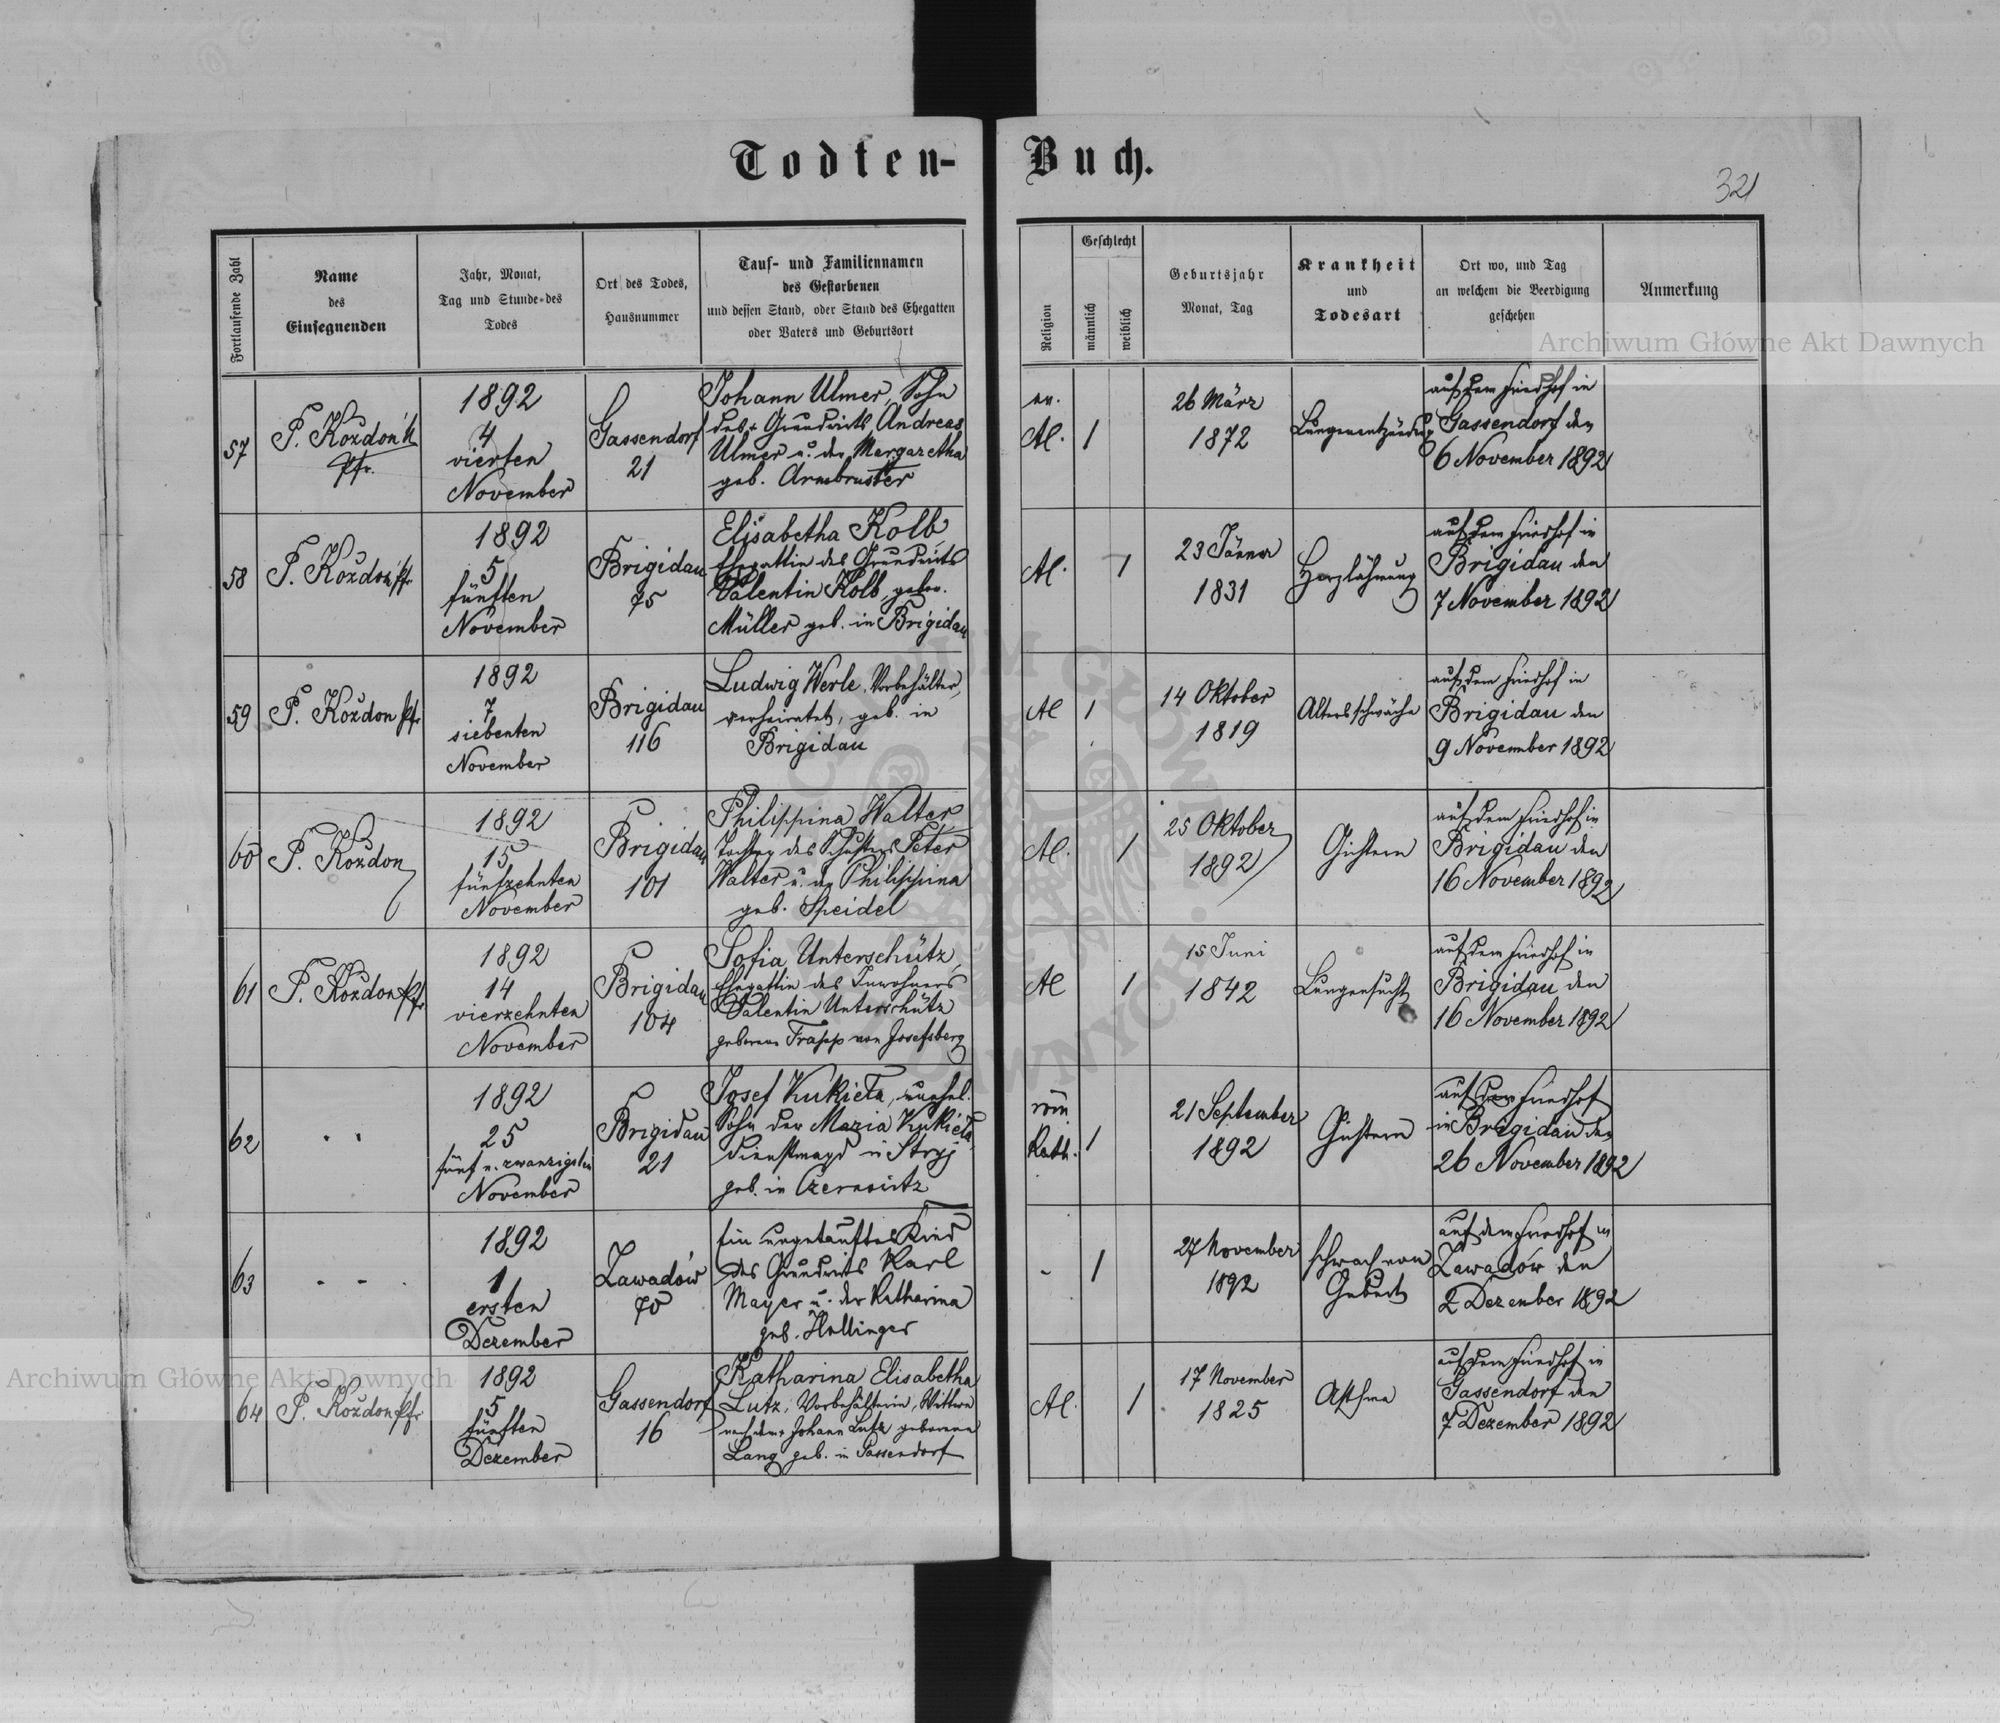 Todten-
Buch.
321
Fortlaufende Zahl
Name
des
Einsegnenden
Jahr, Monat,
Tag und Stunde des
Todes
Ort des Todes,
Hausnummer
Tauf- und Familiennamen
des Gestorbenen
und dessen Stand, oder Stand des Ehegatten
oder Vaters und Geburtsort
Religion
Geschlecht
männlich
weiblich
Geburtsjahr
Monat, Tag
Krankheit
und
Todesart
Ort wo, und Tag
an welchem die Beerdigung
geschehen
Anmerkung
57
P. Kozdoń
Pfr.
1892
4
vierten
November
Gassendorf
21
Johann Ulmer, Sohn
des + Grundwirts Andreas
Ulmer u. der Margaretha
geb. Armbruster
ev.
Al. 1
26 März
1872
Lungenentzündung
auf dem Friedhof in
Gassendorf den
6 November 1892
58
P. Kozdoń Pfr
1892
5
fünften
November
Brigidau
75
Elisabetha Kolb,
Ehegattin des Grundwirts
Valentin Kolb, gebor.
Müller geb. in Brigidau
Al. 1
23 Jänner
1831
Herzlähmung
auf dem Friedhof in
Brigidau den
7 November 1892
59
P. Kozdon Pfr
1892
7
siebenten
November
Brigidau
116
Ludwig Werle, Vorbehälter,
verheiratet, geb. in
Brigidau
Al 1
14 Oktober
1819
Altersschwäche
auf dem Friedhof in
Brigidau den
9 November 1892
60
P. Kozdon
1892
15
fünfzehnten
November
Brigidau
101
Philippina Walter
Tochter des Schusters Peter
Walter u. der Philippina
geb. Speidel
Al. 1
25 Oktober
1892
Gichtern
auf dem Friedhof in
Brigidau den
16 November 1892
61
P. Kozdon Pfr
1892
14
vierzehnten
November
Brigidau
104
Sofia Unterschütz,
Ehegattin des Inwohners
Valentin Unterschütz
geborene Trapp von Josefsberg
Al 1
15 Juni
1842
Lungensucht
auf dem Friedhof in
Brigidau den
16 November 1892
62
" "
1892
25
fünf u. zwanzigsten
November
Brigidau
21
Josef Kukieła, unehel.
Sohn der Maria Kukieła,
Dienstmagd in Stryj
geb. in
röm
Kath. 1
21 September
1892
Gichtern
auf dem Friedhof
in Brigidau den
26 November 1892
63
- -
1892
1
ersten
Dezember
Zawadów
70
Ein ungetauftes Kind
des Grundwirts Karl
Mayer u. der Katharina
geb. Hollinger
- 1
27 November
1892
schwach von
Geburt
auf dem Friedhof in
Zawadów den
2 Dezember 1892
64
P. Kozdon Pfr
1892
5
fünften
Dezember
Gassendorf
16
Katharina Elisabetha
Lutz, Vorbehälterin, Wittwe
nach dem + Johann Lutz geborene
Lang geb. in Gassendorf
Al. 1
17 November
1825
Asthma
auf dem Friedhof in
Gassendorf den
7 Dezember 1892
Archiwum Główne Akt Dawnych
Archiwum Główne Akt Dawnych